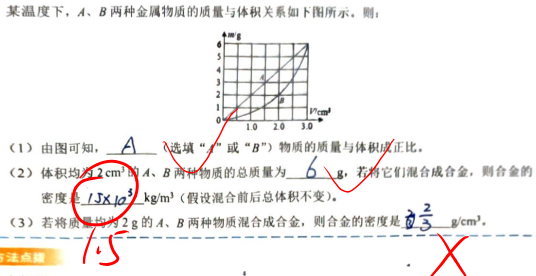 某温度下，A、B 两种金属物质的质量与体积关系如下图所示。则：
m/g
6
5
4
3
2
1
0
A
B
1.0 2.0 3.0
V/cm³
（1）由图可知，A（选填“A”或“B”）物质的质量与体积成正比。
（2）体积均为 2 cm³ 的 A、B 两种物质的总质量为 6 g，若将它们混合成合金，则合金的
密度是 15×10³ kg/m³（假设混合前后总体积不变）。
1.5
（3）若将质量均为 2 g 的 A、B 两种物质混合成合金，则合金的密度是 2/3 g/cm³。
方法点拨